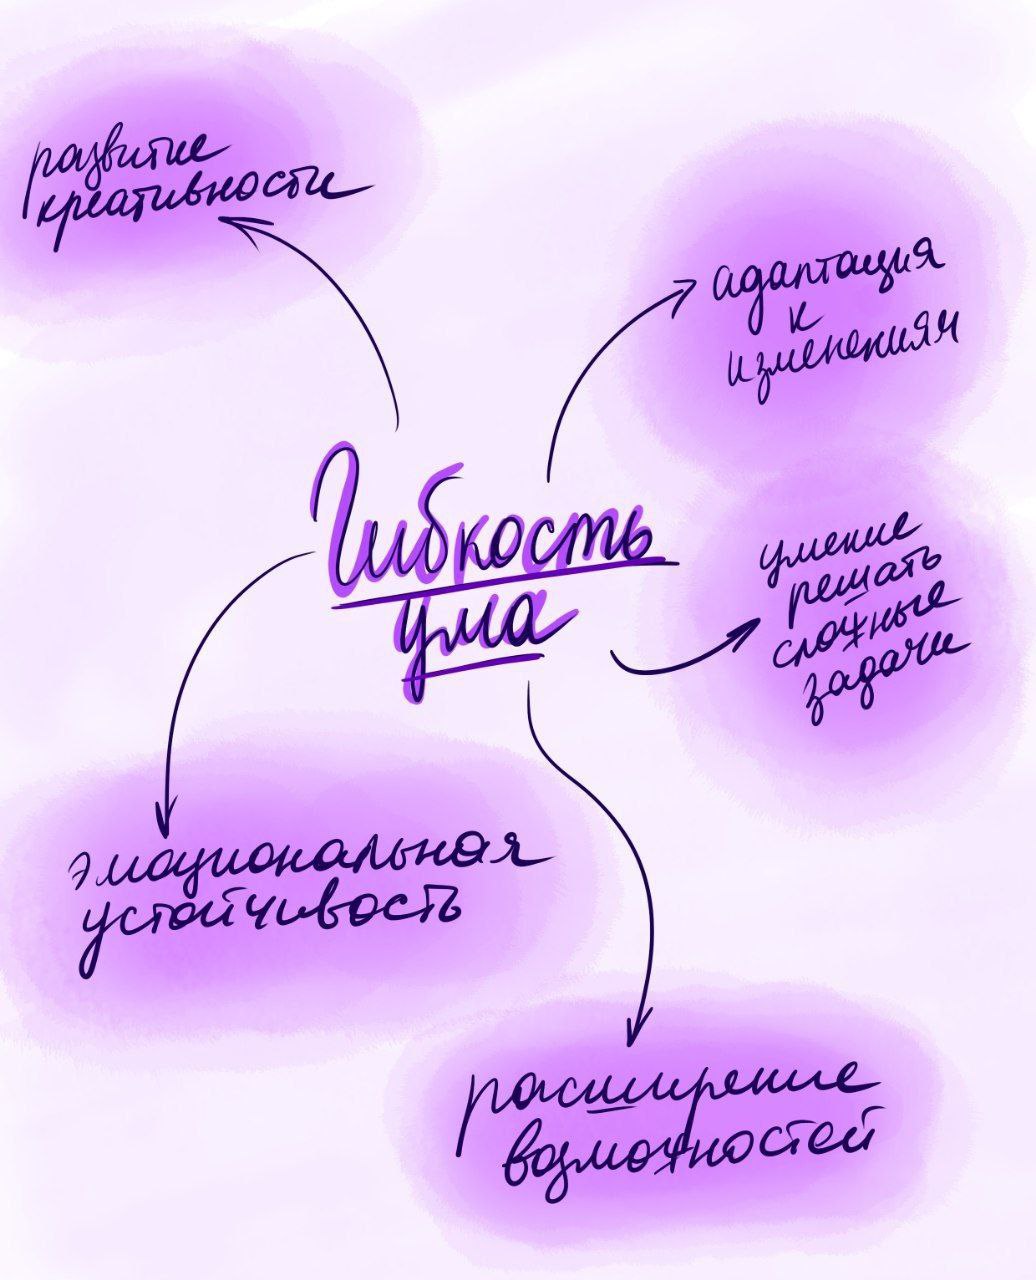 развитие
креативности
адаптация
к
изменениям
Гибкость
ума
умение
решать
сложные
задачи
эмоциональная
устойчивость
расширение
возможностей